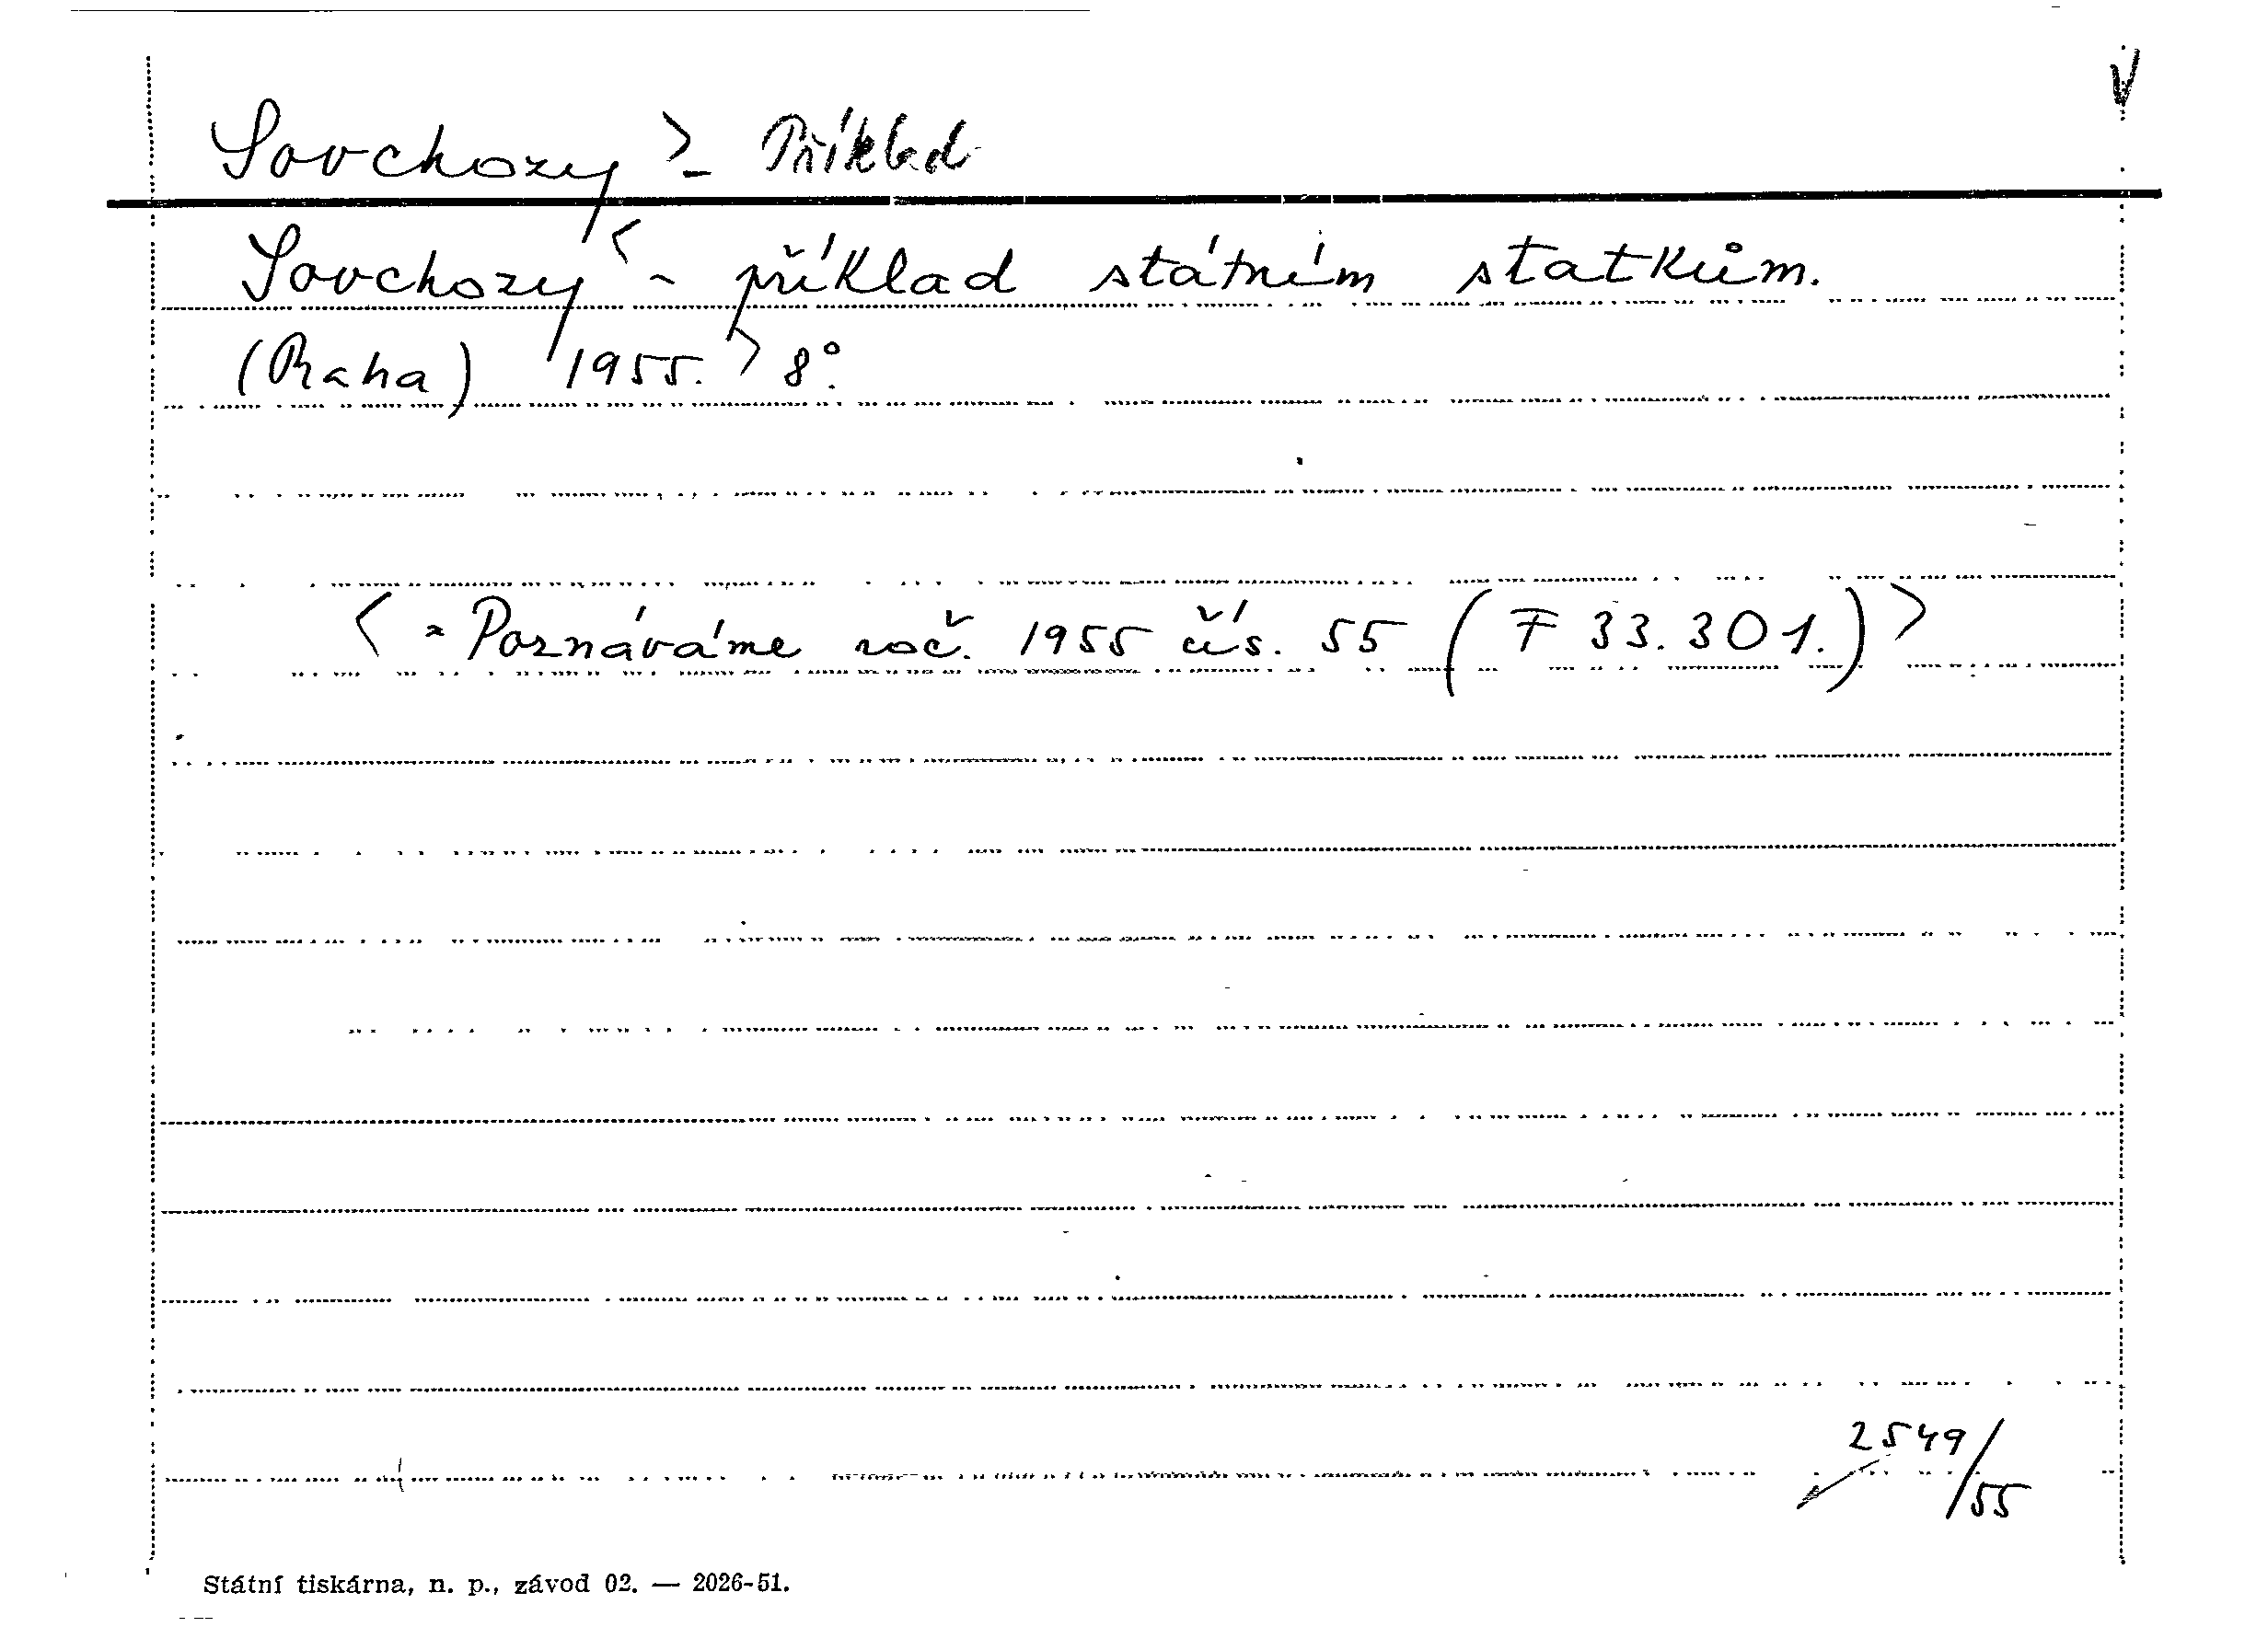 Sovchozy > - Příklad
Sovchozy < - příklad státním statkům.
(Praha) 1955. > 8°.
< = Poznáváme roč. 1955 čís. 55 (F 33.301.) >
2549/55
Státní tiskárna, n. p., závod 02. — 2026-51.